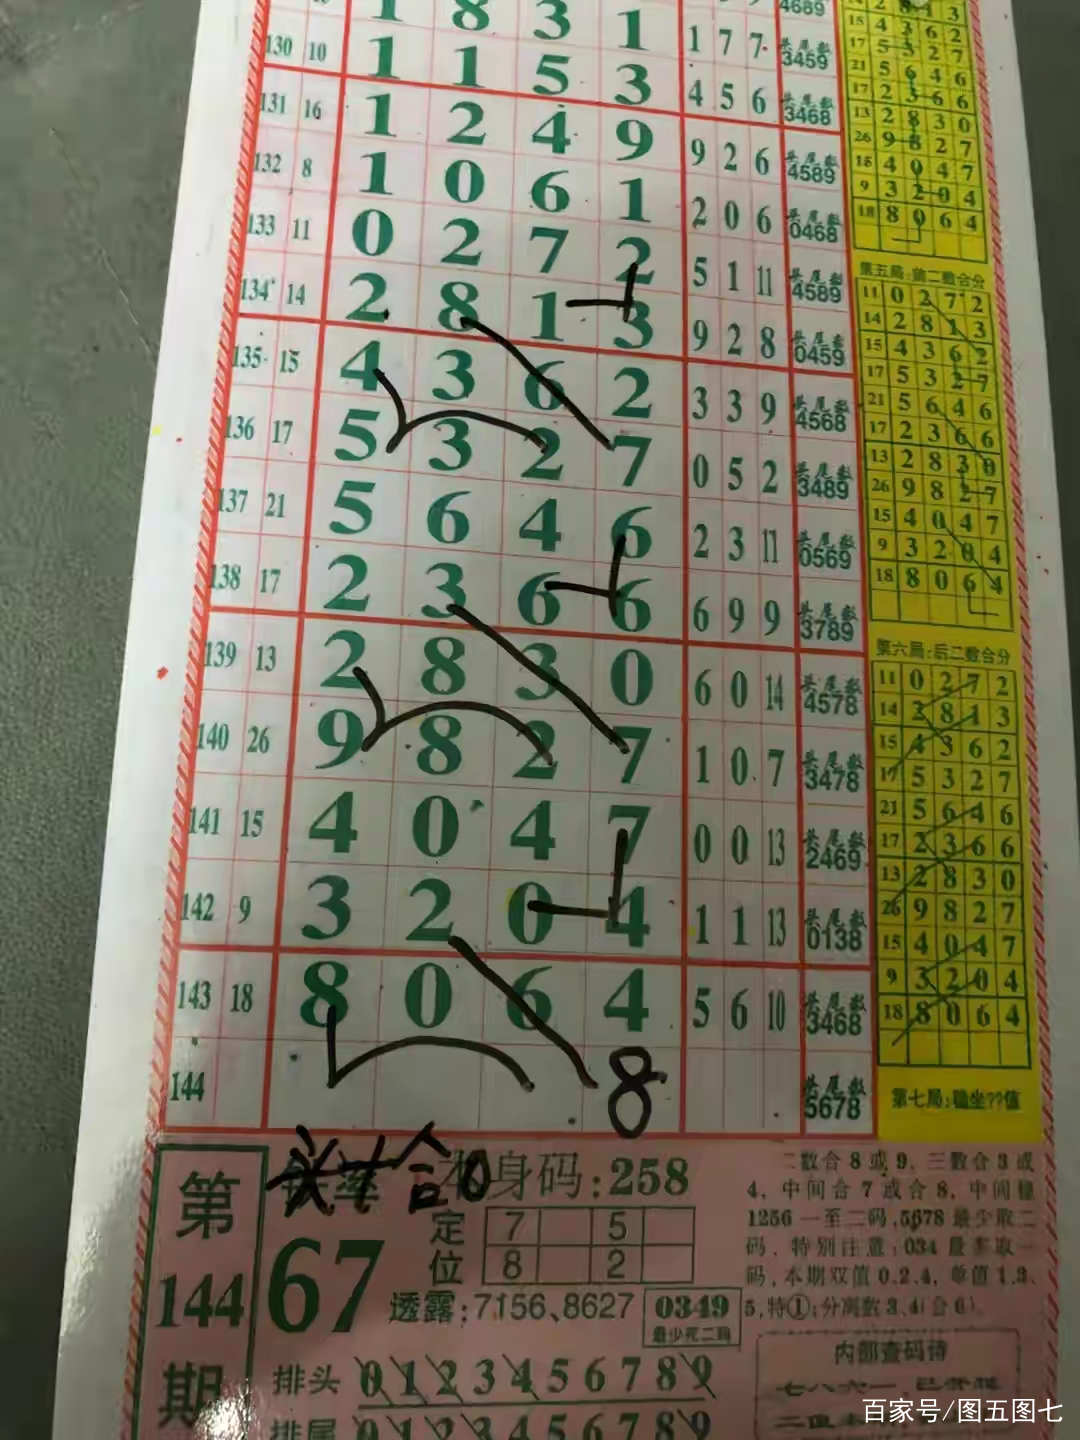 1 8 3 1 4689
130 10 1 1 5 3 1 7 7 头尾数 3459
131 16 1 2 4 9 4 5 6 头尾数 3468
132 8 1 0 6 1 9 2 6 头尾数 4589
133 11 0 2 7 2 2 0 6 头尾数 0468
134 14 2 8 1 3 5 1 11 头尾数 4589
135 15 4 3 6 2 9 2 8 头尾数 0459
136 17 5 3 2 7 3 3 9 头尾数 4568
137 21 5 6 4 6 0 5 2 头尾数 3489
138 17 2 3 6 6 2 3 11 头尾数 0569
139 13 2 8 3 0 6 9 9 头尾数 3789
140 26 9 8 2 7 6 0 14 头尾数 4578
141 15 4 0 4 7 1 0 7 头尾数 3478
142 9 3 2 0 4 0 0 13 头尾数 2469
143 18 8 0 6 4 1 1 13 头尾数 0138
5 6 10 头尾数 3468
144 8 头尾数 5678
15 4 3 6 2
17 5 3 2 7
21 5 6 4 6
17 2 3 6 6
13 2 8 3 0
26 9 8 2 7
15 4 0 4 7
9 3 2 0 4
18 8 0 6 4
第五局:前二数合分
11 0 2 7 2
14 2 8 1 3
15 4 3 6 2
17 5 3 2 7
21 5 6 4 6
17 2 3 6 6
13 2 8 3 0
26 9 8 2 7
15 4 0 4 7
9 3 2 0 4
18 8 0 6 4
第六局:后二数合分
11 0 2 7 2
14 2 8 1 3
15 4 3 6 2
17 5 3 2 7
21 5 6 4 6
17 2 3 6 6
13 2 8 3 0
26 9 8 2 7
15 4 0 4 7
9 3 2 0 4
18 8 0 6 4
第七局:稳坐??值
第144期
合0
本身码:258
67
定位
7 5
8 2
透露:7156、8627
0349
最少死二码
排头 0 1 2 3 4 5 6 7 8 9
排尾 0 1 2 3 4 5 6 7 8 9
二数合8或9,三数合3或
4,中间合7或合8,中间稳
1256一至二码,5678最少取二
码,特别注意:034最多取一
码,本期双值0.2.4,单值1.3.
5,特①;分离数3.4(合6).
内部查码待
七八六一
百家号/图五图七